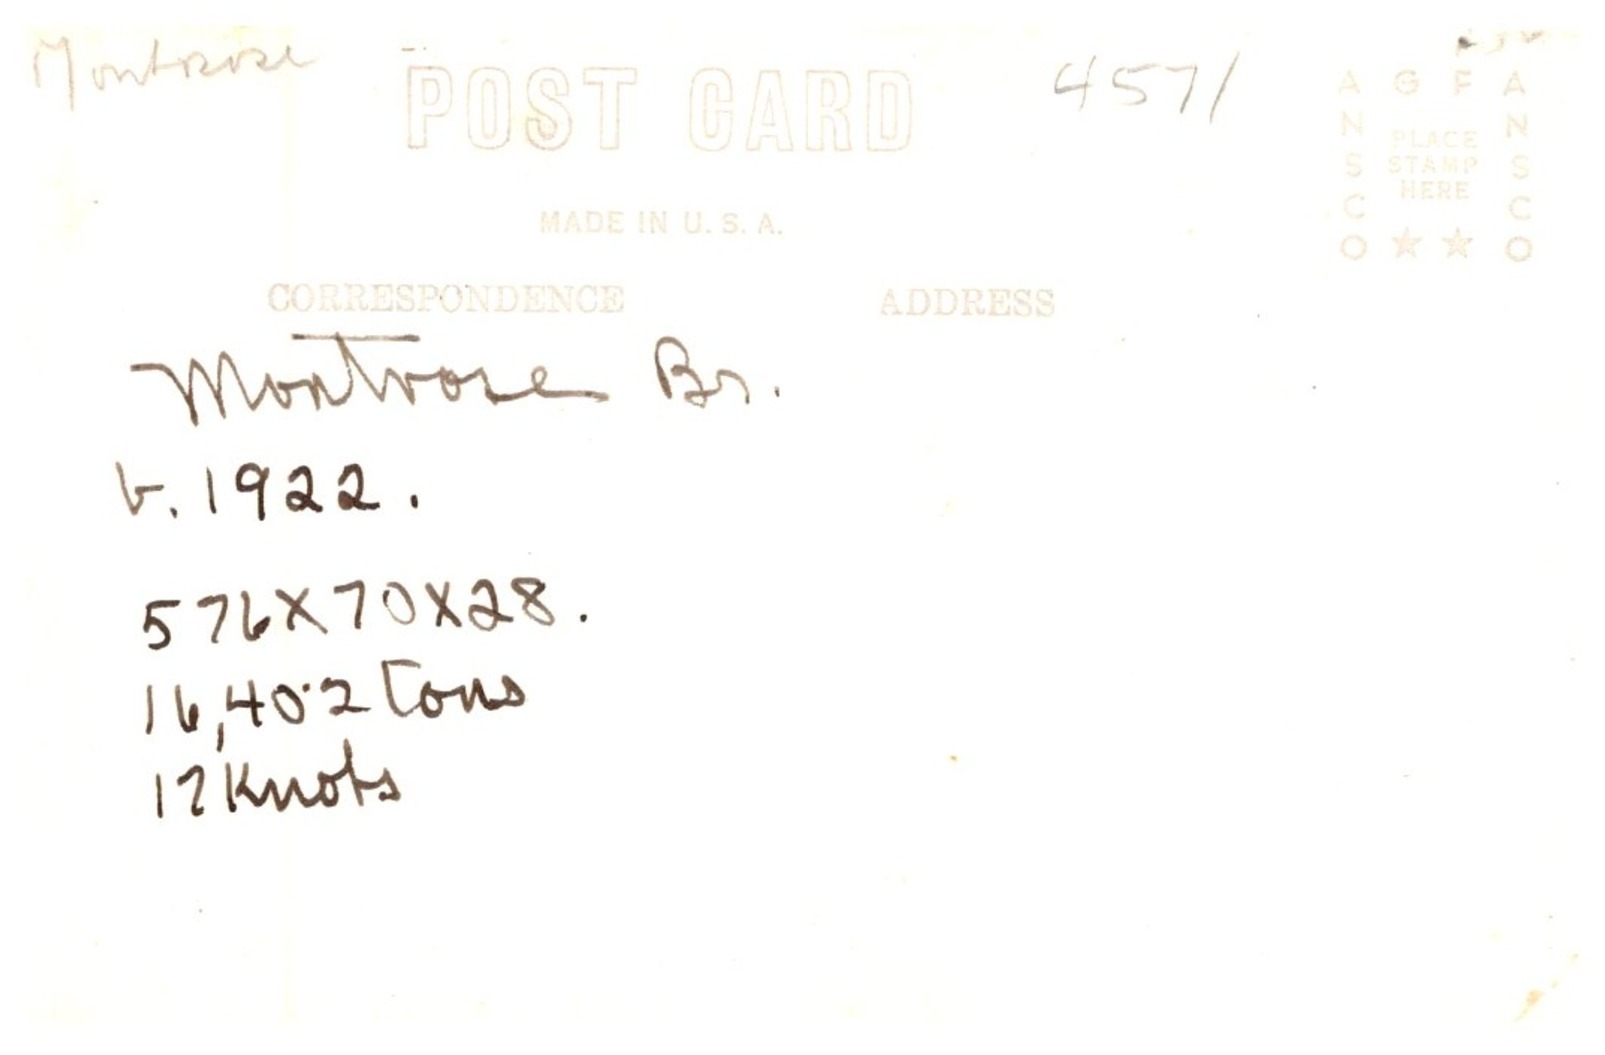 Montrose
POST CARD
4571
AGFA
ANSCO
ANSCO
PLACE
STAMP
HERE
MADE IN U.S.A.
CORRESPONDENCE
ADDRESS
Montrose Br.
b. 1922.
576X70X28.
16,402 Tons
17 Knots